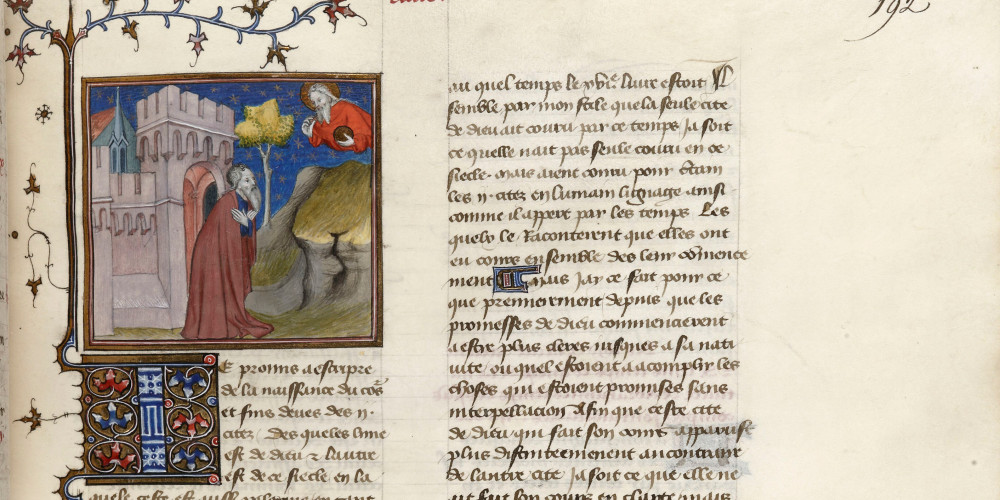 192
E promis a escripre
de la naissance du cōs
et fins deues des .ii.
citez des queles lune
est de dieu & lautre
est de ce siecle en la
quele ceste est
au quel temps le xviie. liure estoit Il
semble par mon stile que la seule cite
de dieu ait couru par ce temps Ja soit
ce quelle nait pas seule couru en ce
siecle. mais aient couru pour certain
les .ii. citez en lumain lignage ainsi
comme il appert par les temps Les
quelx le Raconterent que elles ont
eu cours ensemble des leur cōmence
ment Mais Jay ce fait pour ce
que premierement depuis que les
promesses de dieu commencierent
a estre plus cleres iusques a sa nati
uite ou quel estoient a acomplir les
choses qui estoient promises sans
interpellacion Afin que ceste cite
de dieu qui fait son cours apparust
plus distinctement au contraire
de lautre cite Ja soit ce que elle ne
ait fait son cours en clarte mais